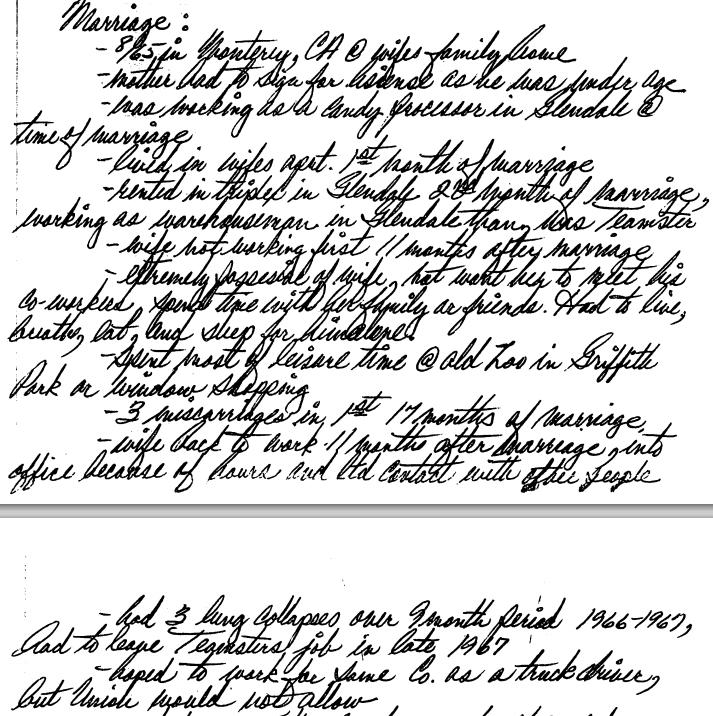 Marriage :
- 8/65 in Monterey, CA @ wifes family home
- mother had to sign for lisense as he was under age
- was working as a candy processor in Glendale @
time of marriage
- lived in wifes aprt. 1st month of marriage
- rented in triplex in Glendale 2nd month of marriage,
working as warehouseman in Glendale than, was Teamster
- wife not working first 11 months after marriage
- extremely possesive of wife, not want her to meet his
co-workers, spend time with her family or friends. Had to live,
breath, eat, and sleep for him alone.
- spent most of leisure time @ old Zoo in Griffith
Park or window shopping
- 3 miscarriages in 1st 17 months of marriage,
- wife back to work 11 months after marriage, into
office because of hours and ltd contact with other people
- had 3 lung collapses over 9 month period 1966-1967,
had to leave Teamsters job in late 1967
- hoped to work for same Co. as a truck driver,
but Union would not allow